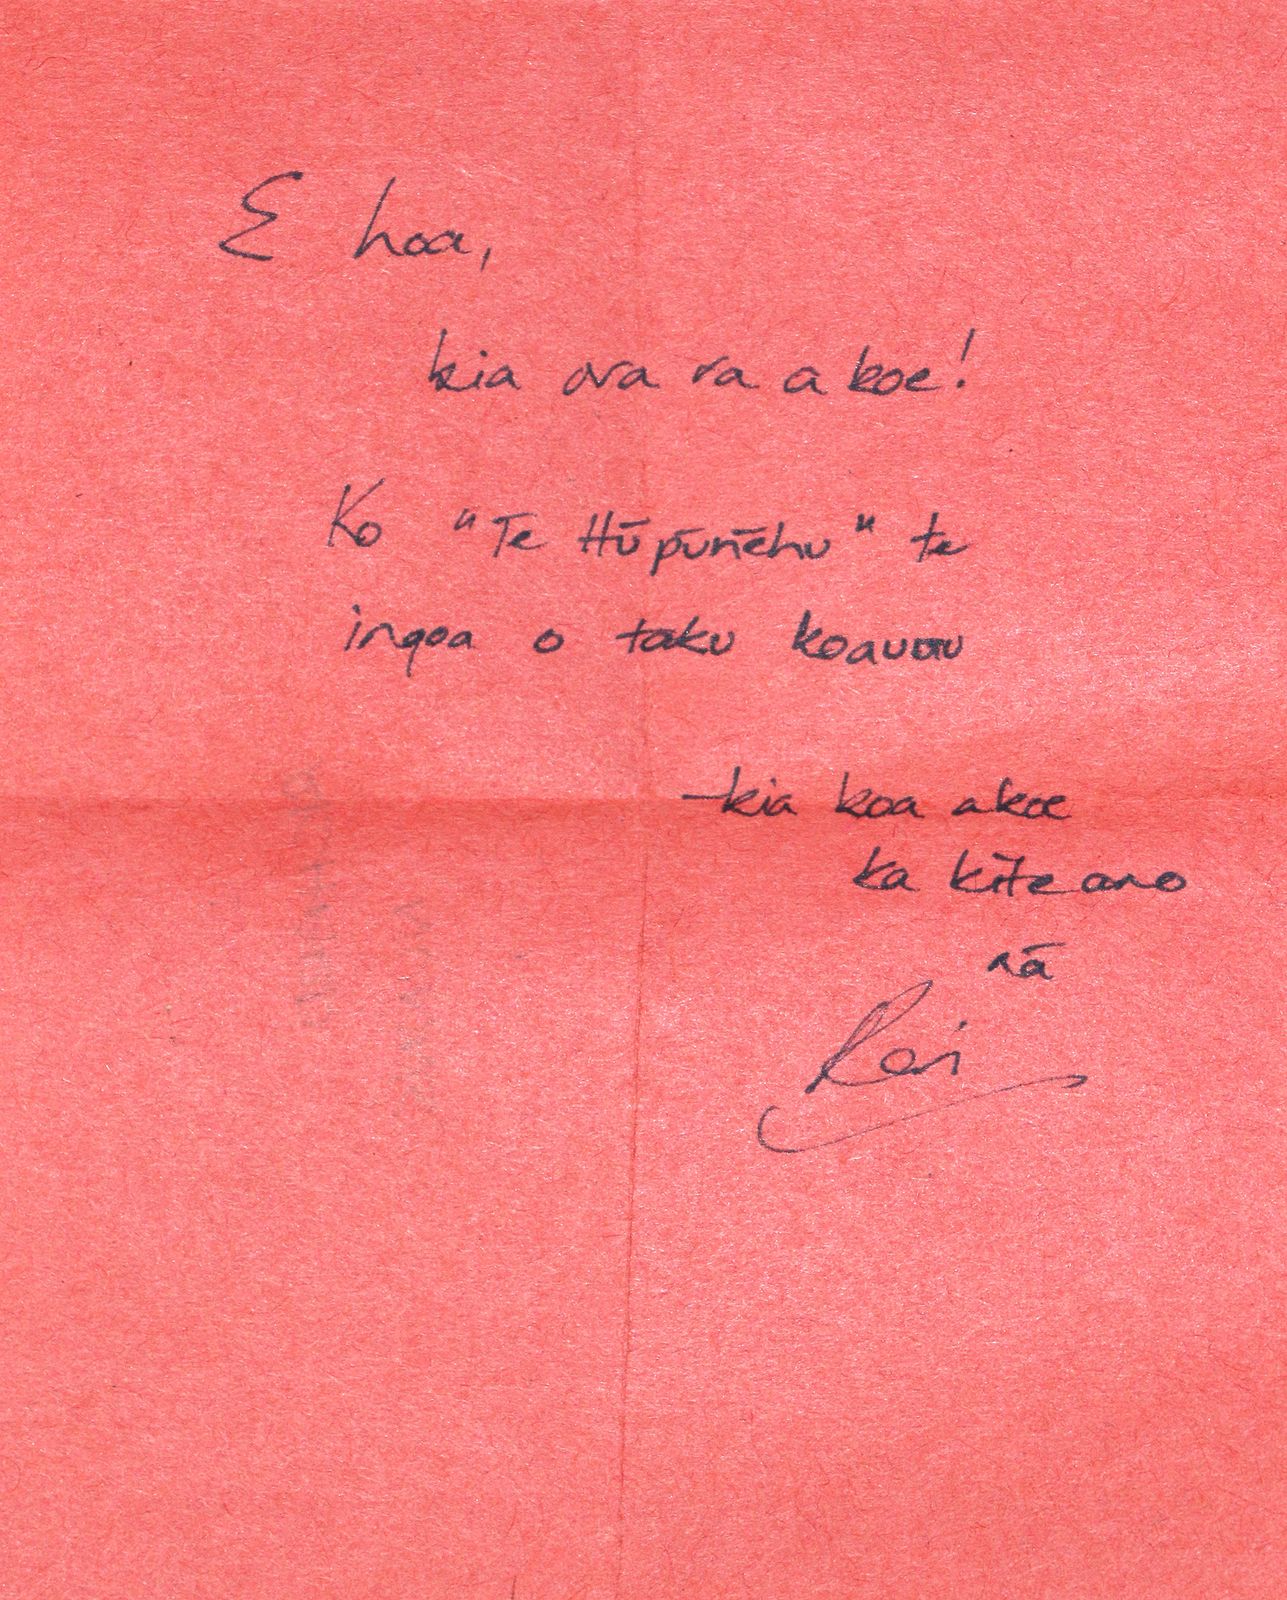 E hoa,
kia ora ra a koe!
Ko "Te Hūpūnēhu" te
ingoa o taku koauau
- kia koa akoe
ka kite ano
nā